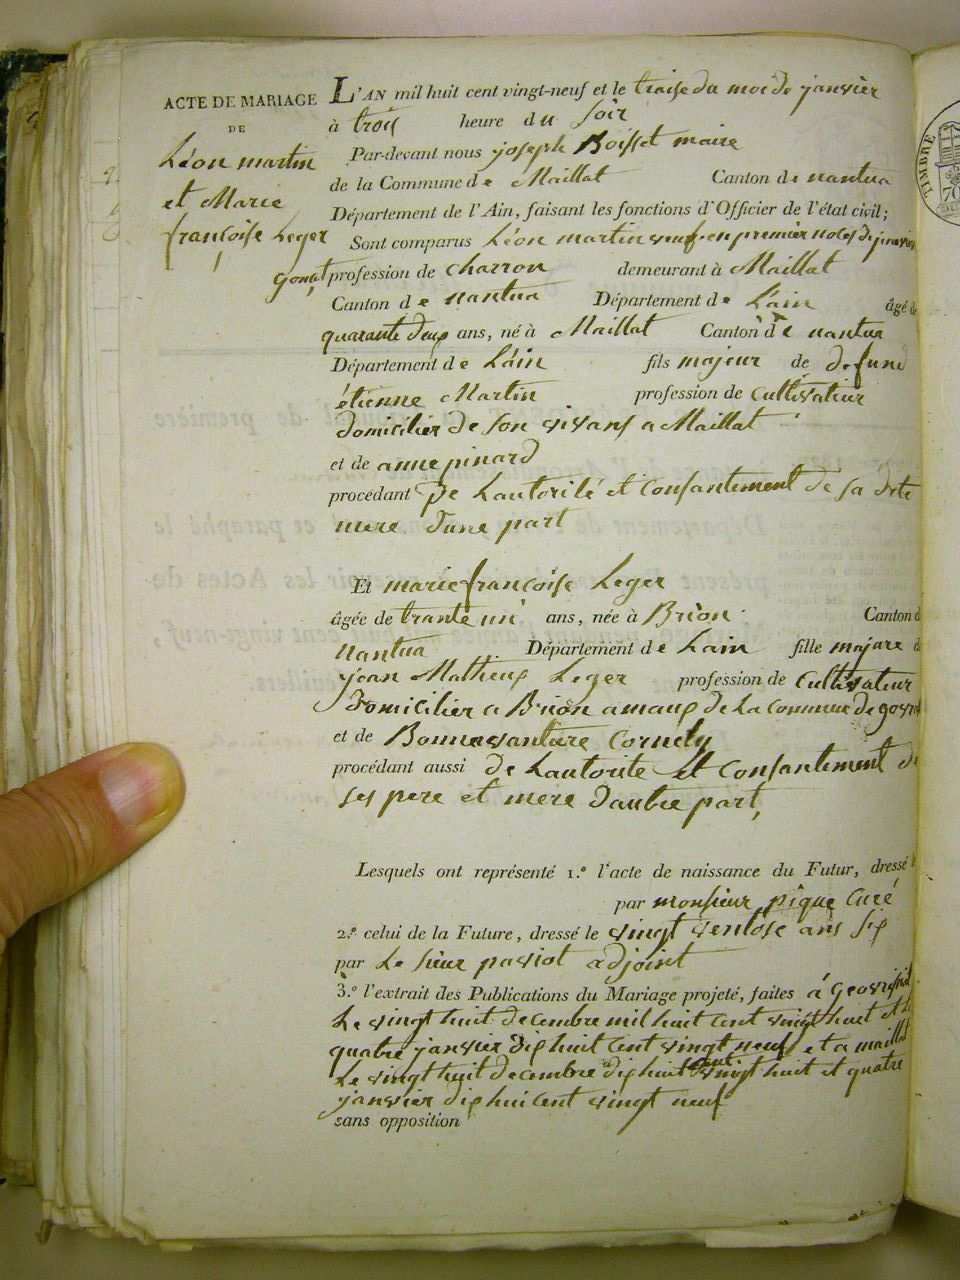 ACTE DE MARIAGE
DE
Léon martin
et Marie
françoise Leger
L'AN mil huit cent vingt-neuf et le treise du moi de janvier
à trois heure du soir
Par-devant nous joseph Boisset maire
de la Commune de Maillat Canton de nantua
Département de l'Ain, faisant les fonctions d'Officier de l'état civil;
Sont comparus Léon martin veuf en premier noces de
profession de charron demeurant à Maillat
Canton de nantua Département de L'ain âgé de
quarante deux ans, né à Maillat Canton de nantua
Département de L'ain fils majeur de defund
étienne Martin profession de cultivateur
domicilier de son vivans a Maillat
et de anne pinard
procédant De L'autorité et Consantement de sa dite
mere d'une part
Et marie françoise Leger
âgée de trante un ans, née à Brion Canton d
nantua Département de Lain fille majure d
jean Matheux Leger profession de cultivateur
Domicilier a Brion amaux de La Commune de
et de Bonnavanture Cornely
procédant aussi de Lautorite et Consantement d
ses pere et mere Dautre part,
Lesquels ont représenté 1.º l'acte de naissance du Futur, dressé
par monsieur pique Curé
2.º celui de la Future, dressé le vingt ventose ans six
par Le sieur paviot adjoint
3.º l'extrait des Publications du Mariage projeté, faites à
Le vingt huit decembre mil huit Cent vingt huit et L
quatre janvier dix huit Cent vingt neuf et a maillat
Le vingt huit decembre dix huit cent vingt huit et quatre
janvier dix hui cent vingt neuf
sans opposition
TIMBRE